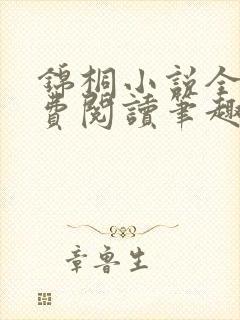 錦桐小説全
費閱讀筆趣
章魯生